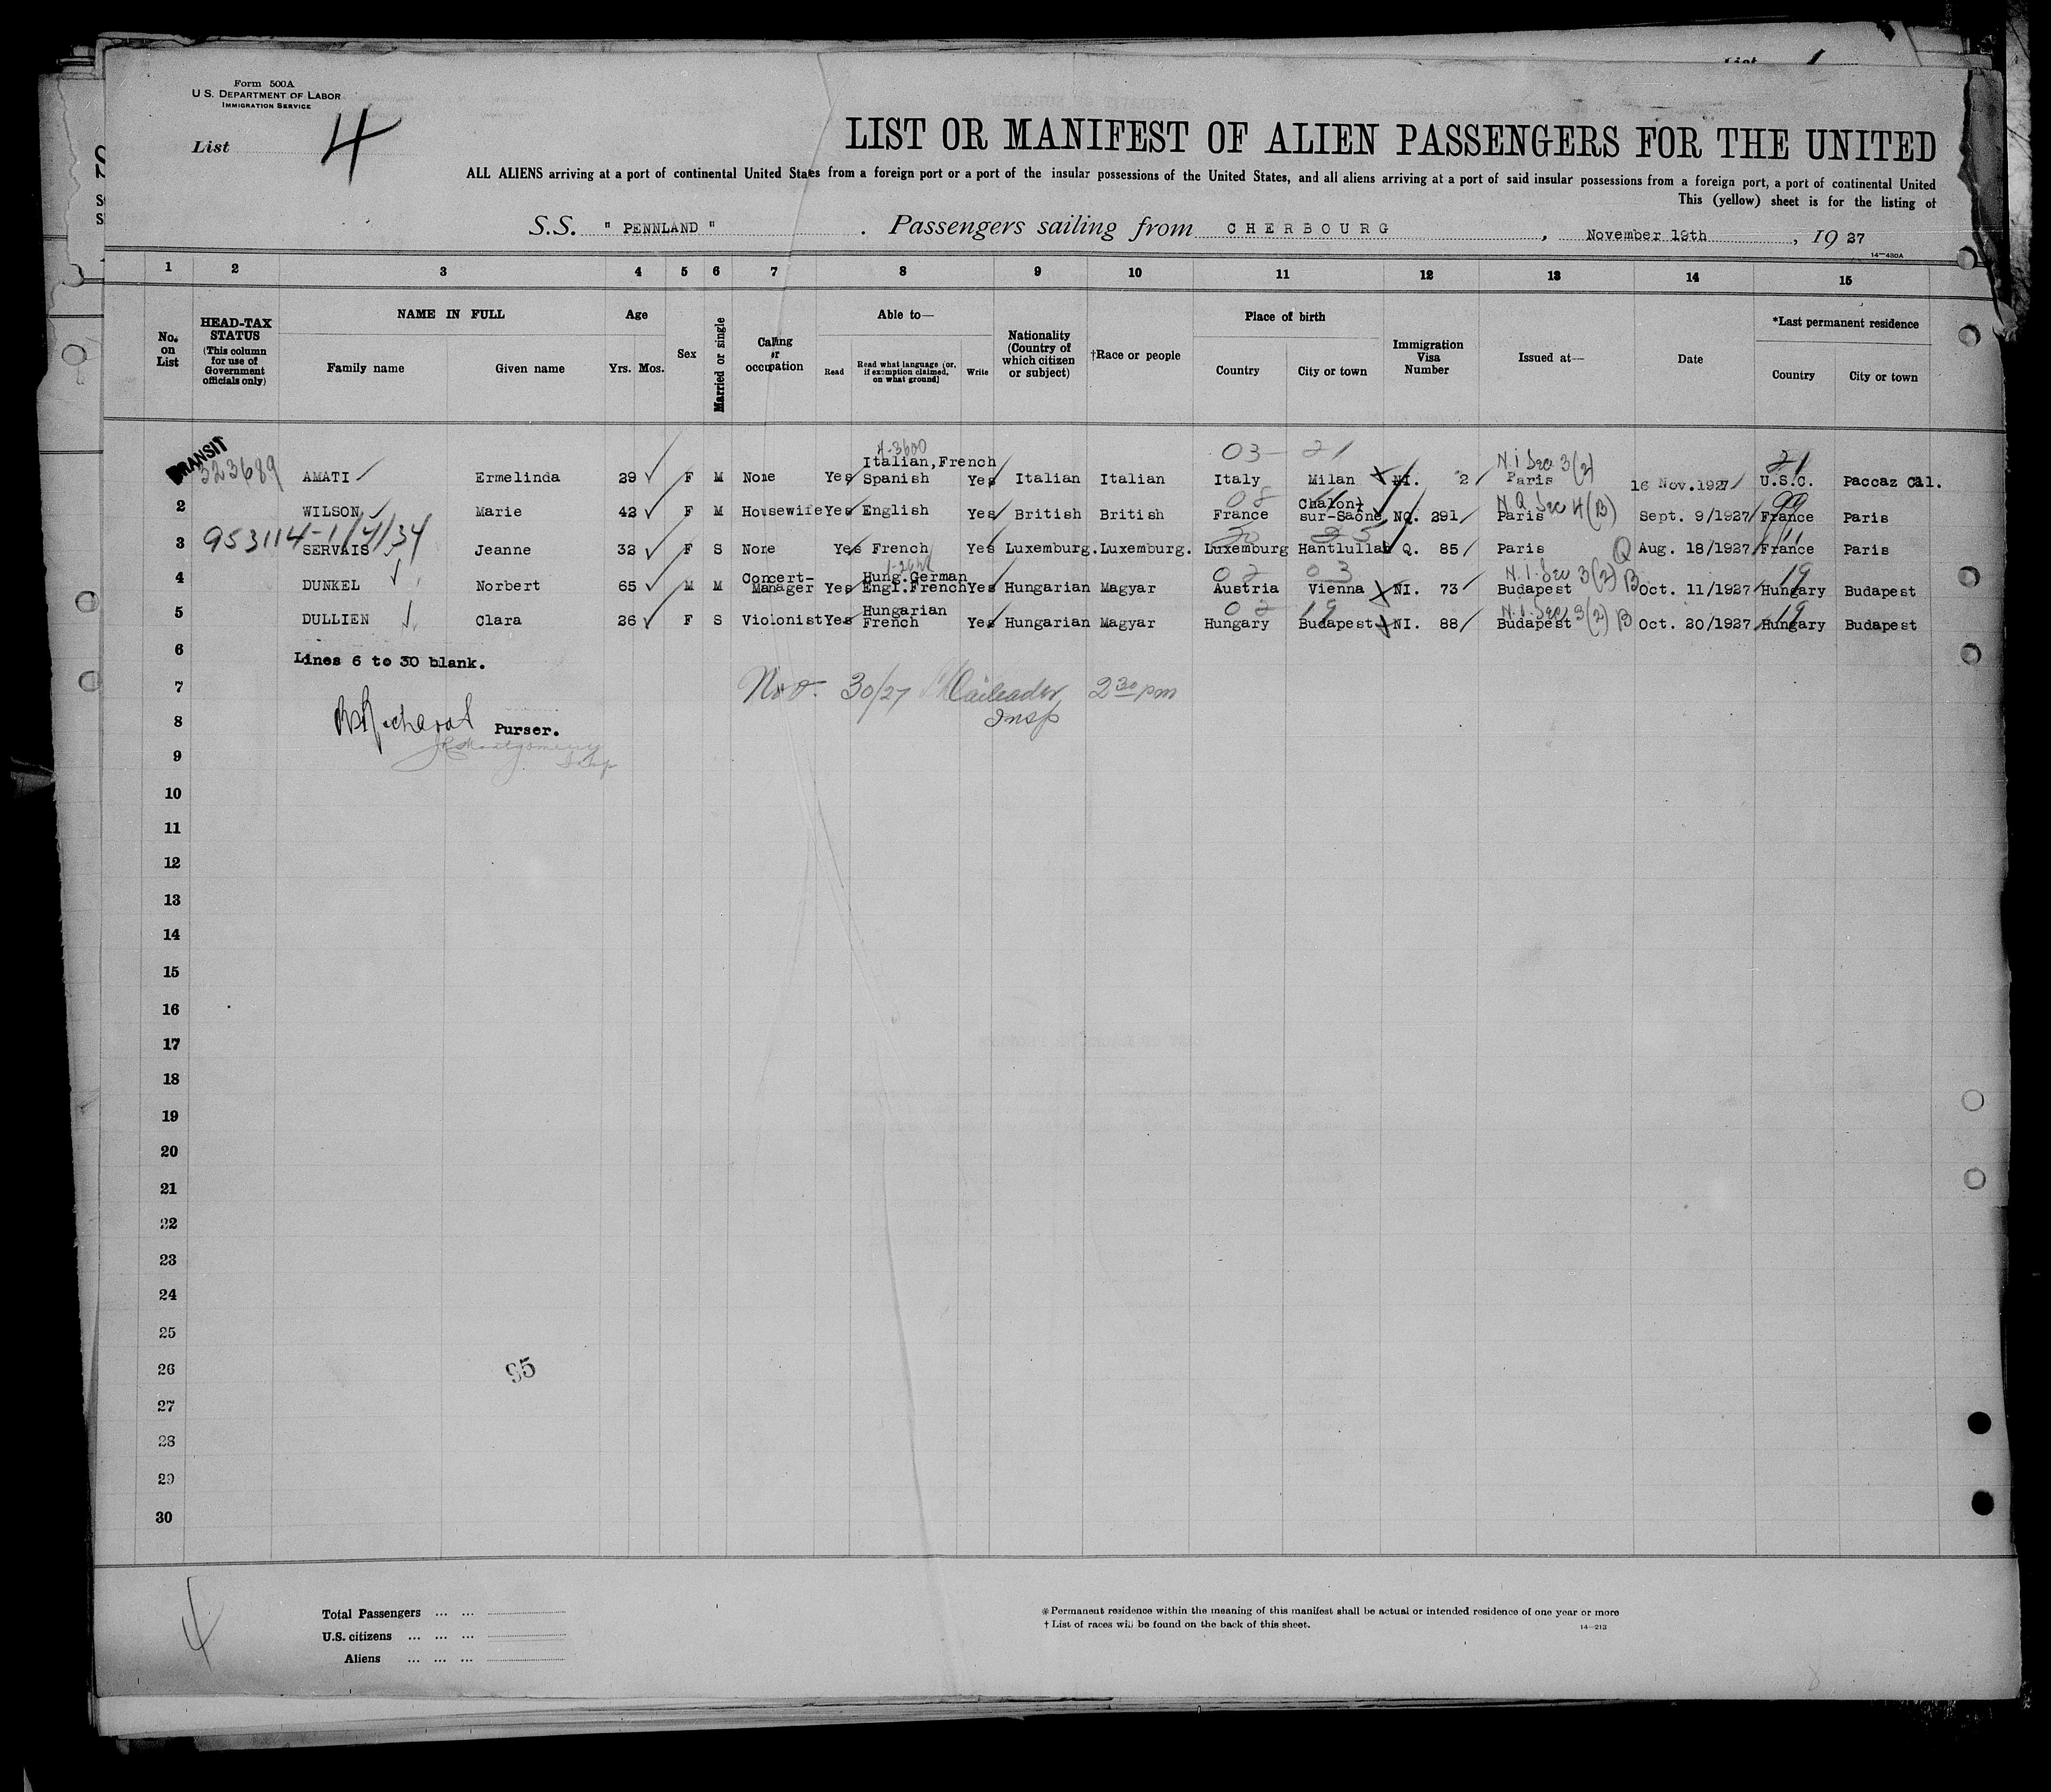 Form 500A
U.S. DEPARTMENT OF LABOR
IMMIGRATION SERVICE
List 4
LIST OR MANIFEST OF ALIEN PASSENGERS FOR THE UNITED
ALL ALIENS arriving at a port of continental United States from a foreign port or a port of the insular possessions of the United States, and all aliens arriving at a port of said insular possessions from a foreign port, a port of continental United
This (yellow) sheet is for the listing of
S.S. " PENNLAND " . Passengers sailing from CHERBOURG , November 19th , 19 27
14—430A
1 2 3 4 5 6 7 8 9 10 11 12 13 14 15
No. on List
HEAD-TAX STATUS
(This column for use of Government officials only)
NAME IN FULL
Family name Given name
Age
Yrs. Mos.
Sex
Married or single
Calling or occupation
Able to—
Read Read what language (or, if exemption claimed, on what ground) Write
Nationality (Country of which citizen or subject)
†Race or people
Place of birth
Country City or town
Immigration Visa Number
Issued at—
Date
*Last permanent residence
Country City or town
TRANSIT
323689 AMATI Ermelinda 29 F M None Yes Italian, French Spanish Yes Italian Italian Italy Milan NI. 2 Paris 16 Nov. 1927 U.S.C. Paccaz Cal.
03 21 N.I Sec 3(2) 21
2 WILSON Marie 42 F M Housewife Yes English Yes British British France Chalon-sur-Saône NQ. 291 Paris Sept. 9/1927 France Paris
08 N.Q Sec 4(B) 99
953114-1/4/34
3 SERVAIS Jeanne 32 F S None Yes French Yes Luxemburg. Luxemburg. Luxemburg Hantlullab Q. 85 Paris Q Aug. 18/1927 France Paris
4 DUNKEL Norbert 65 M M Concert-Manager Yes Hung. German Engl. French Yes Hungarian Magyar Austria Vienna NI. 73 Budapest Oct. 11/1927 Hungary Budapest
02 03 N.I. Sec 3(2) B 19
5 DULLIEN Clara 26 F S Violonist Yes Hungarian French Yes Hungarian Magyar Hungary Budapest NI. 88 Budapest Oct. 20/1927 Hungary Budapest
02 19 N.I. Sec 3(2) B 19
6 Lines 6 to 30 blank.
7 Nov. 30/27 2 30 pm
8 Purser. Insp
9
10
11
12
13
14
15
16
17
18
19
20
21
22
23
24
25
26
95
27
28
29
30
4
Total Passengers ... ...
U.S. citizens ... ... ...
Aliens ... ... ...
*Permanent residence within the meaning of this manifest shall be actual or intended residence of one year or more
† List of races will be found on the back of this sheet.
14—213